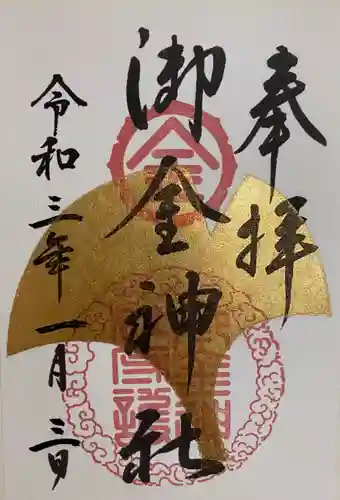 奉拝
御金神社
令和三年一月三日